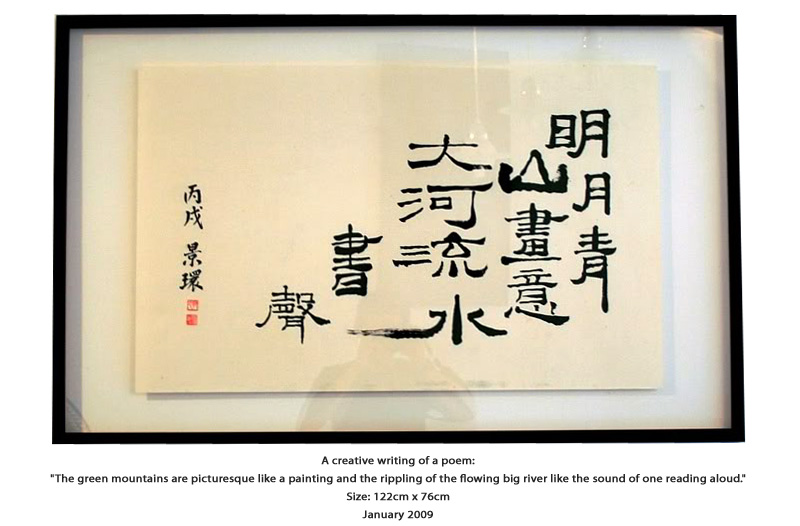 明月青
山畫意
大河流水
書
聲
丙戌 景環
A creative writing of a poem:
"The green mountains are picturesque like a painting and the rippling of the flowing big river like the sound of one reading aloud."
Size: 122cm x 76cm
January 2009